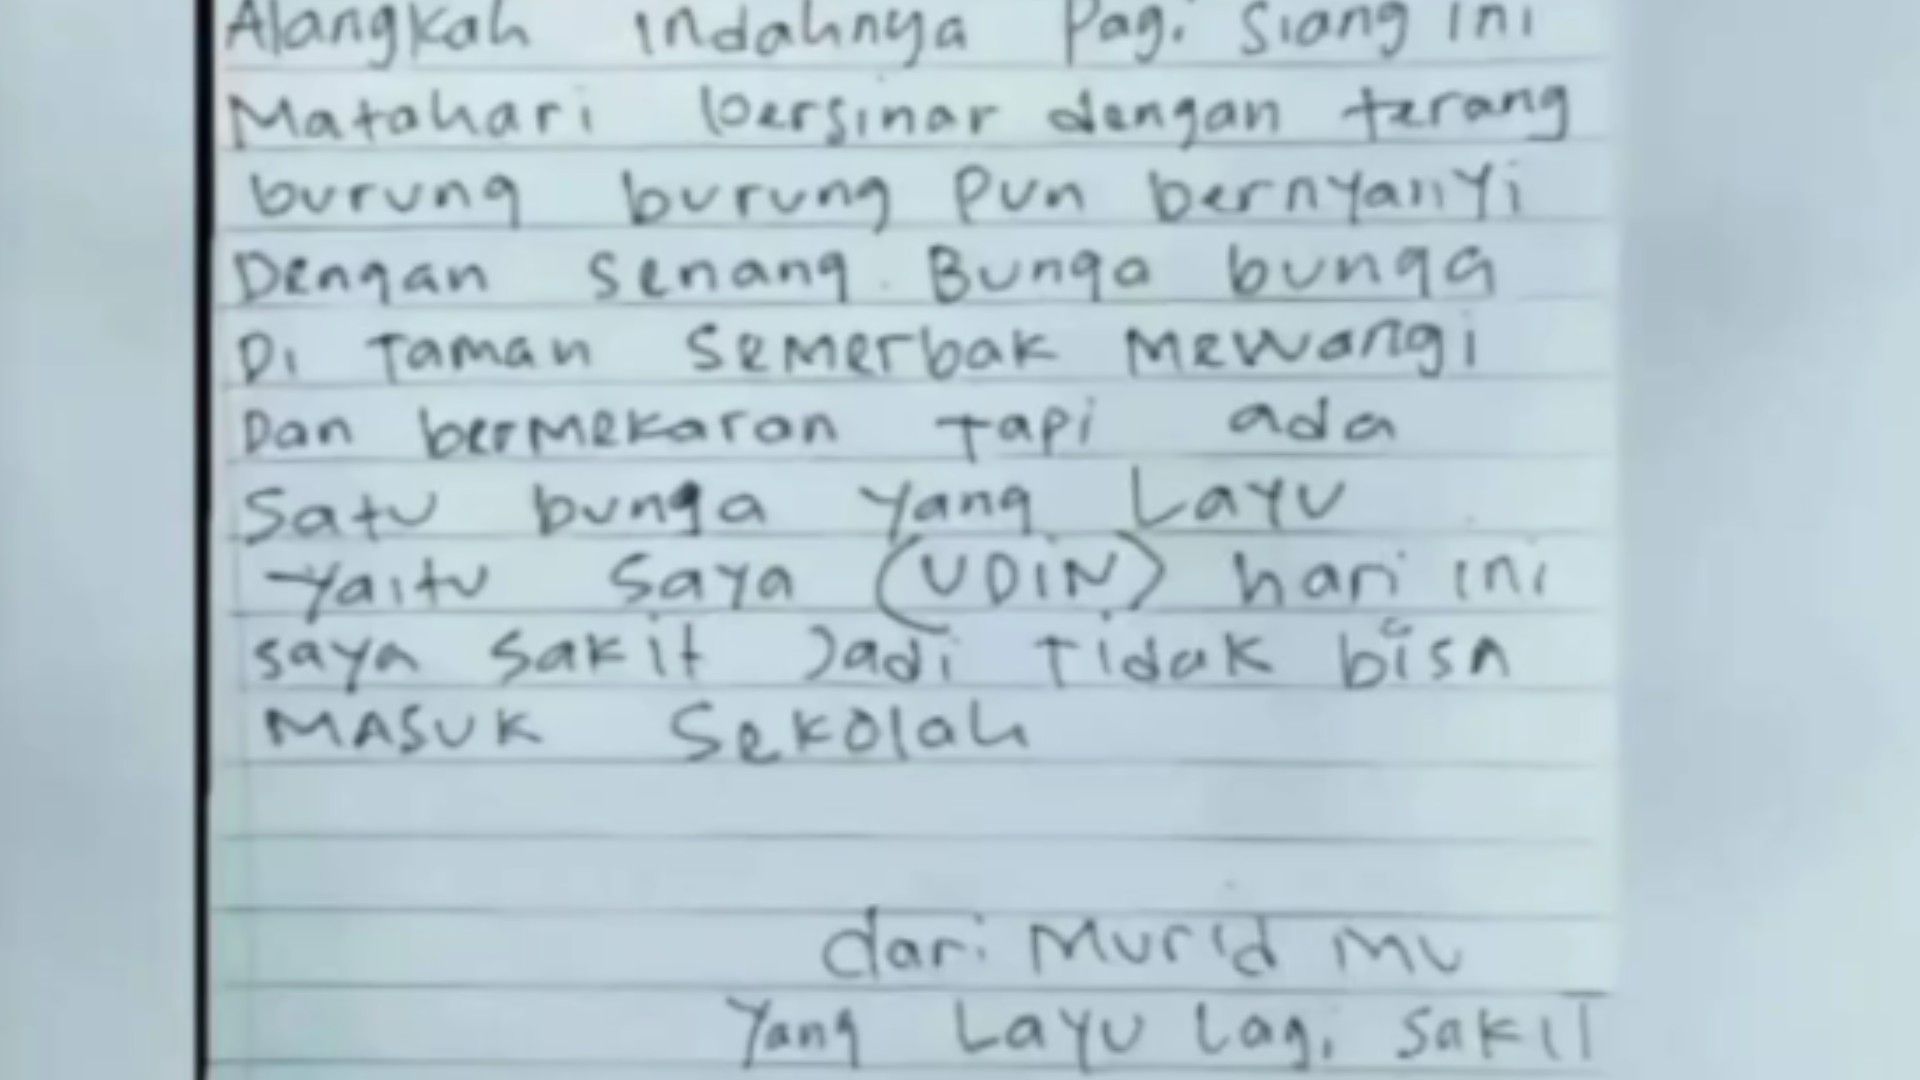 Alangkah indahnya Pagi Siang ini
Matahari bersinar dengan terang
burung burung Pun bernyanyi
Dengan senang. Bunga bunga
Di Taman Semerbak Mewangi
Dan bermekaran tapi ada
Satu bunga yang Layu
Yaitu Saya (UDIN) hari ini
saya sakit Jadi tidak bisa
MASUK Sekolah
dari Murid mu
Yang Layu Lagi sakit